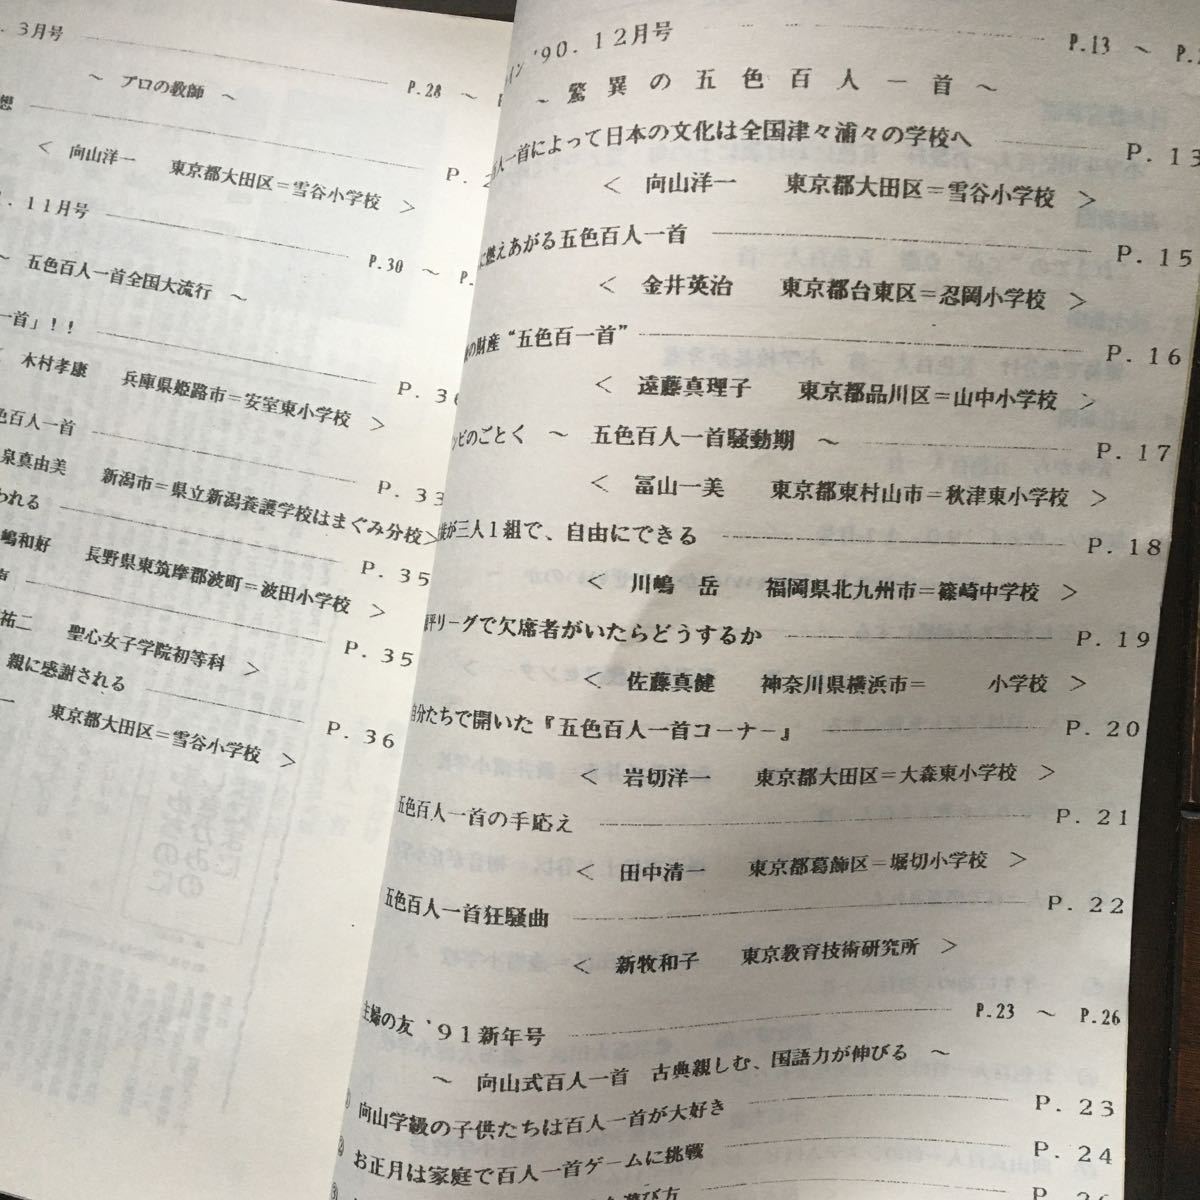 3月号 P.28 ～
～ プロの教師 ～
想 P.
＜ 向山洋一 東京都大田区＝雪谷小学校 ＞
11月号 P.30 ～ P.
～ 五色百人一首全国大流行 ～
一首」!! P.3
木村孝康 兵庫県姫路市＝安室東小学校 ＞
色百人一首 P.33
泉真由美 新潟市＝県立新潟養護学校はまぐみ分校＞
われる P.35
嶋和好 長野県東筑摩郡波町＝波田小学校 ＞
P.35
祐二 聖心女子学院初等科 ＞
親に感謝される P.36
一 東京都大田区＝雪谷小学校 ＞
イン '90.12月号 P.13 ～ P.
～ 驚異の五色百人一首 ～
人一首によって日本の文化は全国津々浦々の学校へ P.13
＜ 向山洋一 東京都大田区＝雪谷小学校 ＞
に燃えあがる五色百人一首 P.15
＜ 金井英治 東京都台東区＝忍岡小学校 ＞
の財産“五色百一首” P.16
＜ 遠藤真理子 東京都品川区＝山中小学校 ＞
ンビのごとく ～ 五色百人一首騒動期 ～ P.17
＜ 冨山一美 東京都東村山市＝秋津東小学校 ＞
が三人1組で、自由にできる P.18
＜ 川嶋 岳 福岡県北九州市＝篠崎中学校 ＞
評リーグで欠席者がいたらどうするか P.19
＜ 佐藤真健 神奈川県横浜市＝ 小学校 ＞
自分たちで開いた『五色百人一首コーナー』 P.20
＜ 岩切洋一 東京都大田区＝大森東小学校 ＞
五色百人一首の手応え P.21
＜ 田中清一 東京都葛飾区＝堀切小学校 ＞
五色百人一首狂騒曲 P.22
＜ 新牧和子 東京教育技術研究所 ＞
主婦の友 '91新年号 P.23 ～ P.26
～ 向山式百人一首 古典親しむ、国語力が伸びる ～
向山学級の子供たちは百人一首が大好き P.23
② お正月は家庭で百人一首ゲームに挑戦 P.24
③ 遊び方